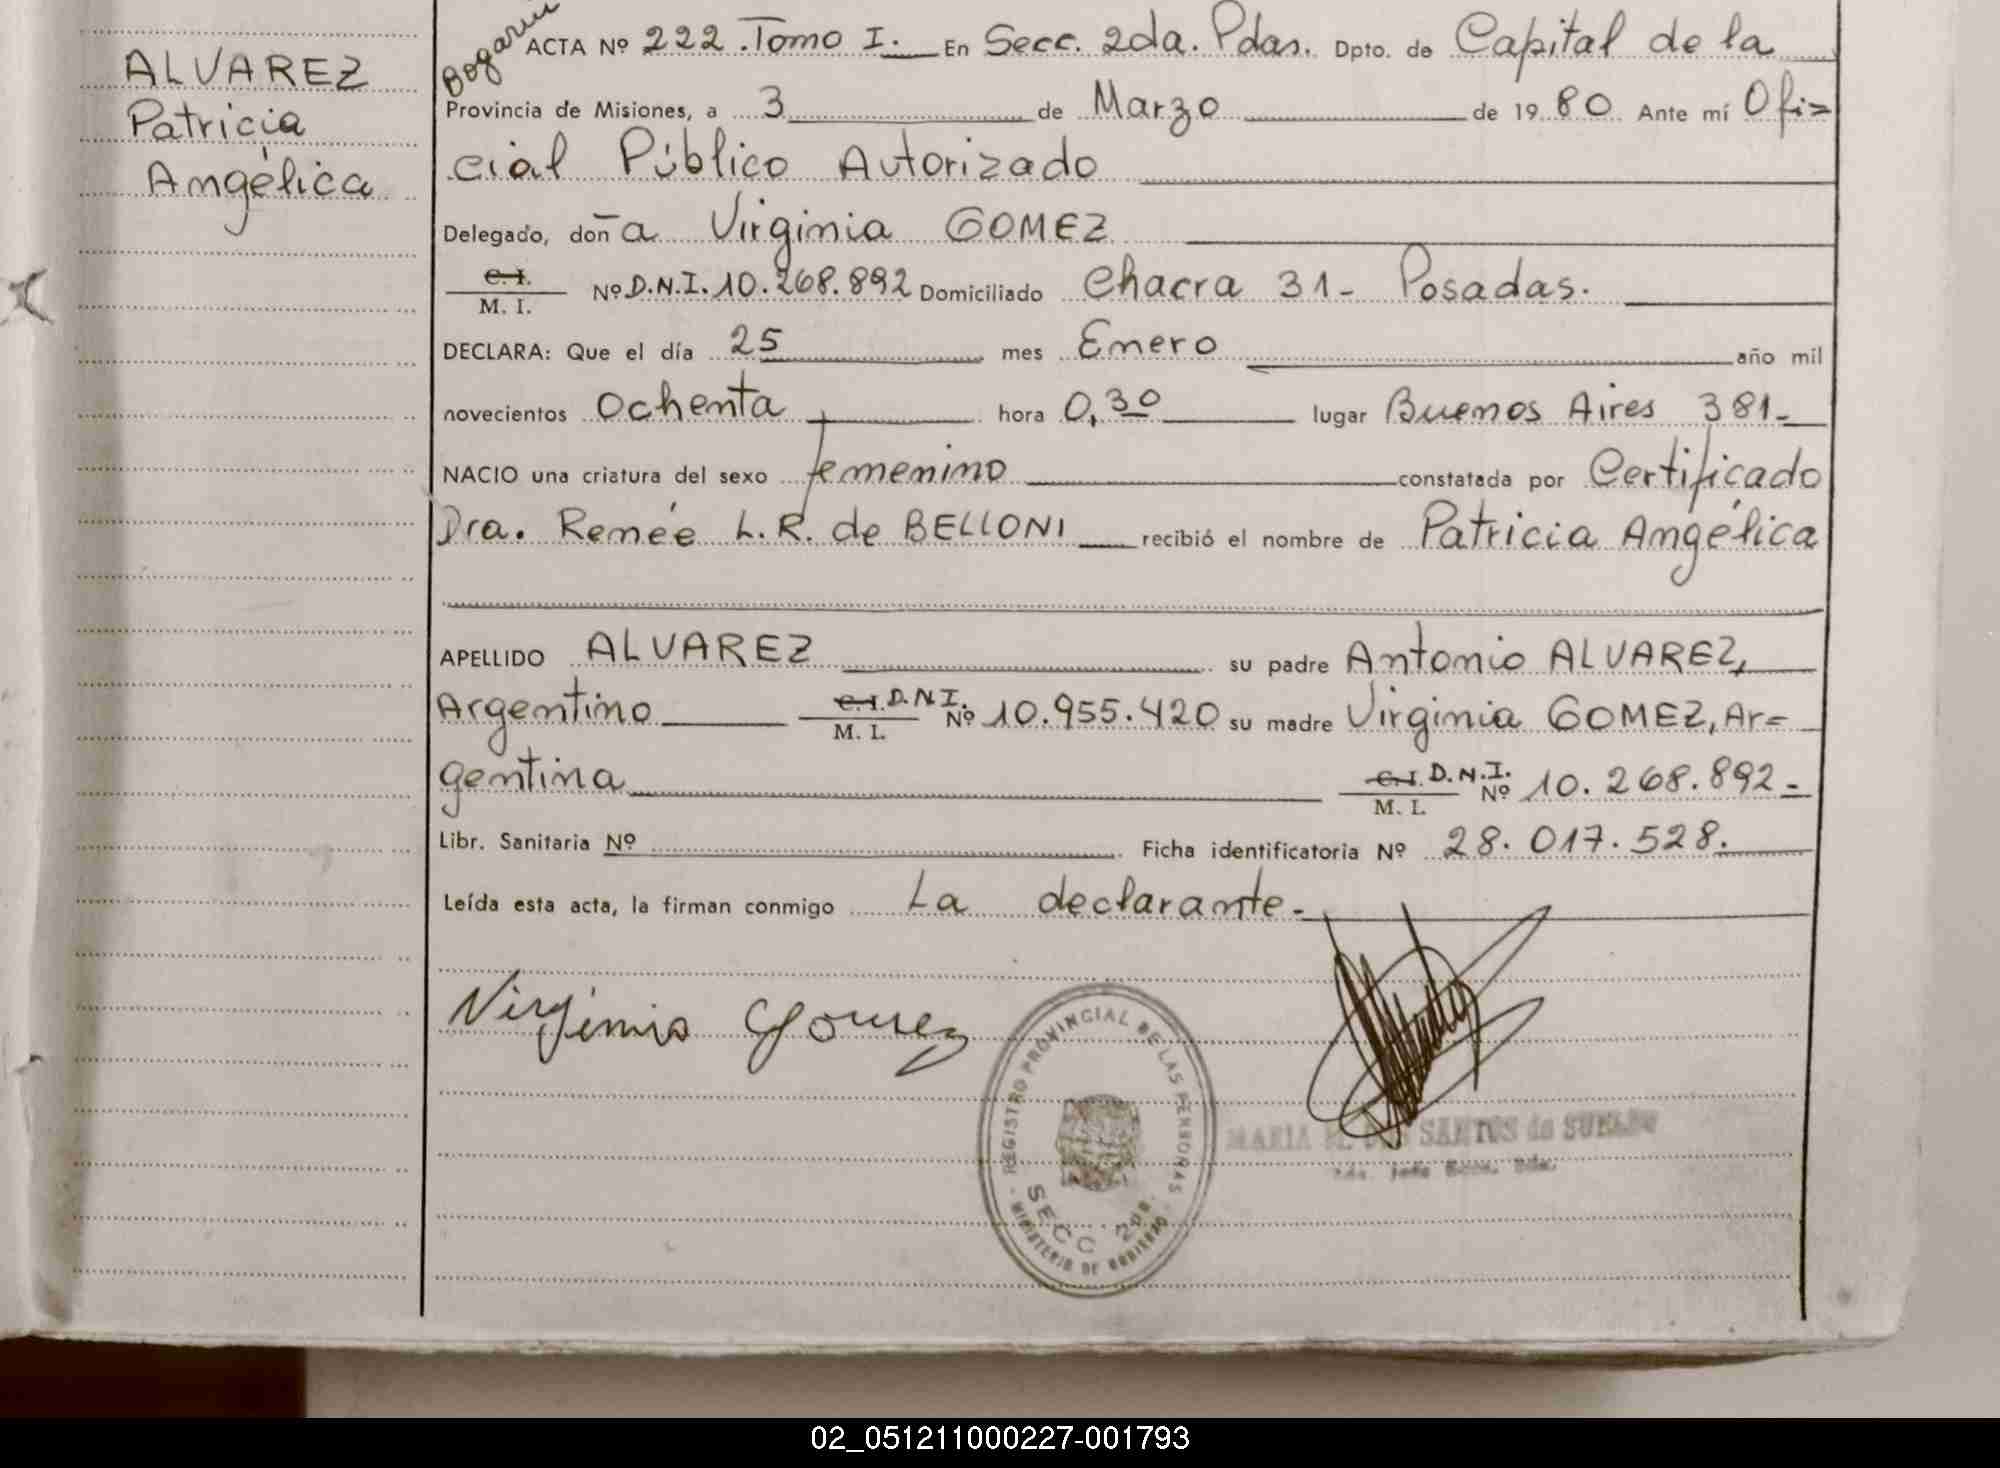 ALVAREZ
Patricia
Angélica
Bogarin
ACTA Nº 222 Tomo I. En Secc. 2da. Pdas. Dpto. de Capital de la
Provincia de Misiones, a 3 de Marzo de 1980 Ante mí Ofi=
cial Público Autorizado
Delegado, doña Virginia GOMEZ
C. I.
M. I. Nº D.N.I. 10.268.892 Domiciliado Chacra 31- Posadas.
DECLARA: Que el día 25 mes Enero año mil
novecientos Ochenta hora 0,30 lugar Buenos Aires 381-
NACIO una criatura del sexo femenino constatada por Certificado
Dra. Renée L.R. de BELLONI recibió el nombre de Patricia Angélica
APELLIDO ALVAREZ su padre Antonio ALVAREZ,
Argentino C. I. D.N.I. M. I. Nº 10.955.420 su madre Virginia GOMEZ, Ar=
gentina C. I. D.N.I. M. I. Nº 10.268.892-
Libr. Sanitaria Nº Ficha identificatoria Nº 28.017.528.
Leída esta acta, la firman conmigo La declarante-
Virginia Gomez
REGISTRO PROVINCIAL DE LAS PERSONAS
SECC. 2da.
MINISTERIO DE GOBIERNO
MARIA SANTOS de
Jefe Secc. 2da.
02_051211000227-001793